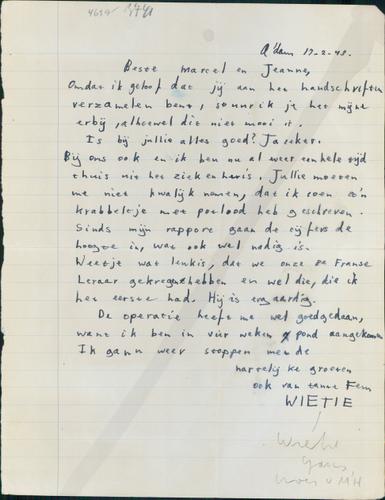 A'dam 17-2-48.
Beste Marcel en Jeanne,
Omdat ik geloof dat jij aan het handschriften
verzamelen bent, stuur ik je het mijne
erbij, alhoewel dit niet mooi is.
Is bij jullie alles goed? Ja zeker.
Bij ons ook en ik ben nu al weer een hele tijd
thuis uit het ziekenhuis. Jullie moeten
me niet kwalijk nemen, dat ik toen zo'n
krabbeltje met potlood heb geschreven.
Sinds mijn rapport gaan de cijfers de
hoogte in, wat ook wel nodig is.
Weet je wat leuk is, dat we onze Franse
Leraar gekregen hebben en wel die, die ik
het eerste had. Hij is erg aardig.
De operatie heeft me wel goedgedaan,
want ik ben in vier weken pond aangekomen
Ik gaan weer stoppen met de
hartelijke groeten
ook van tante Fem
WIETIE
Wiebe